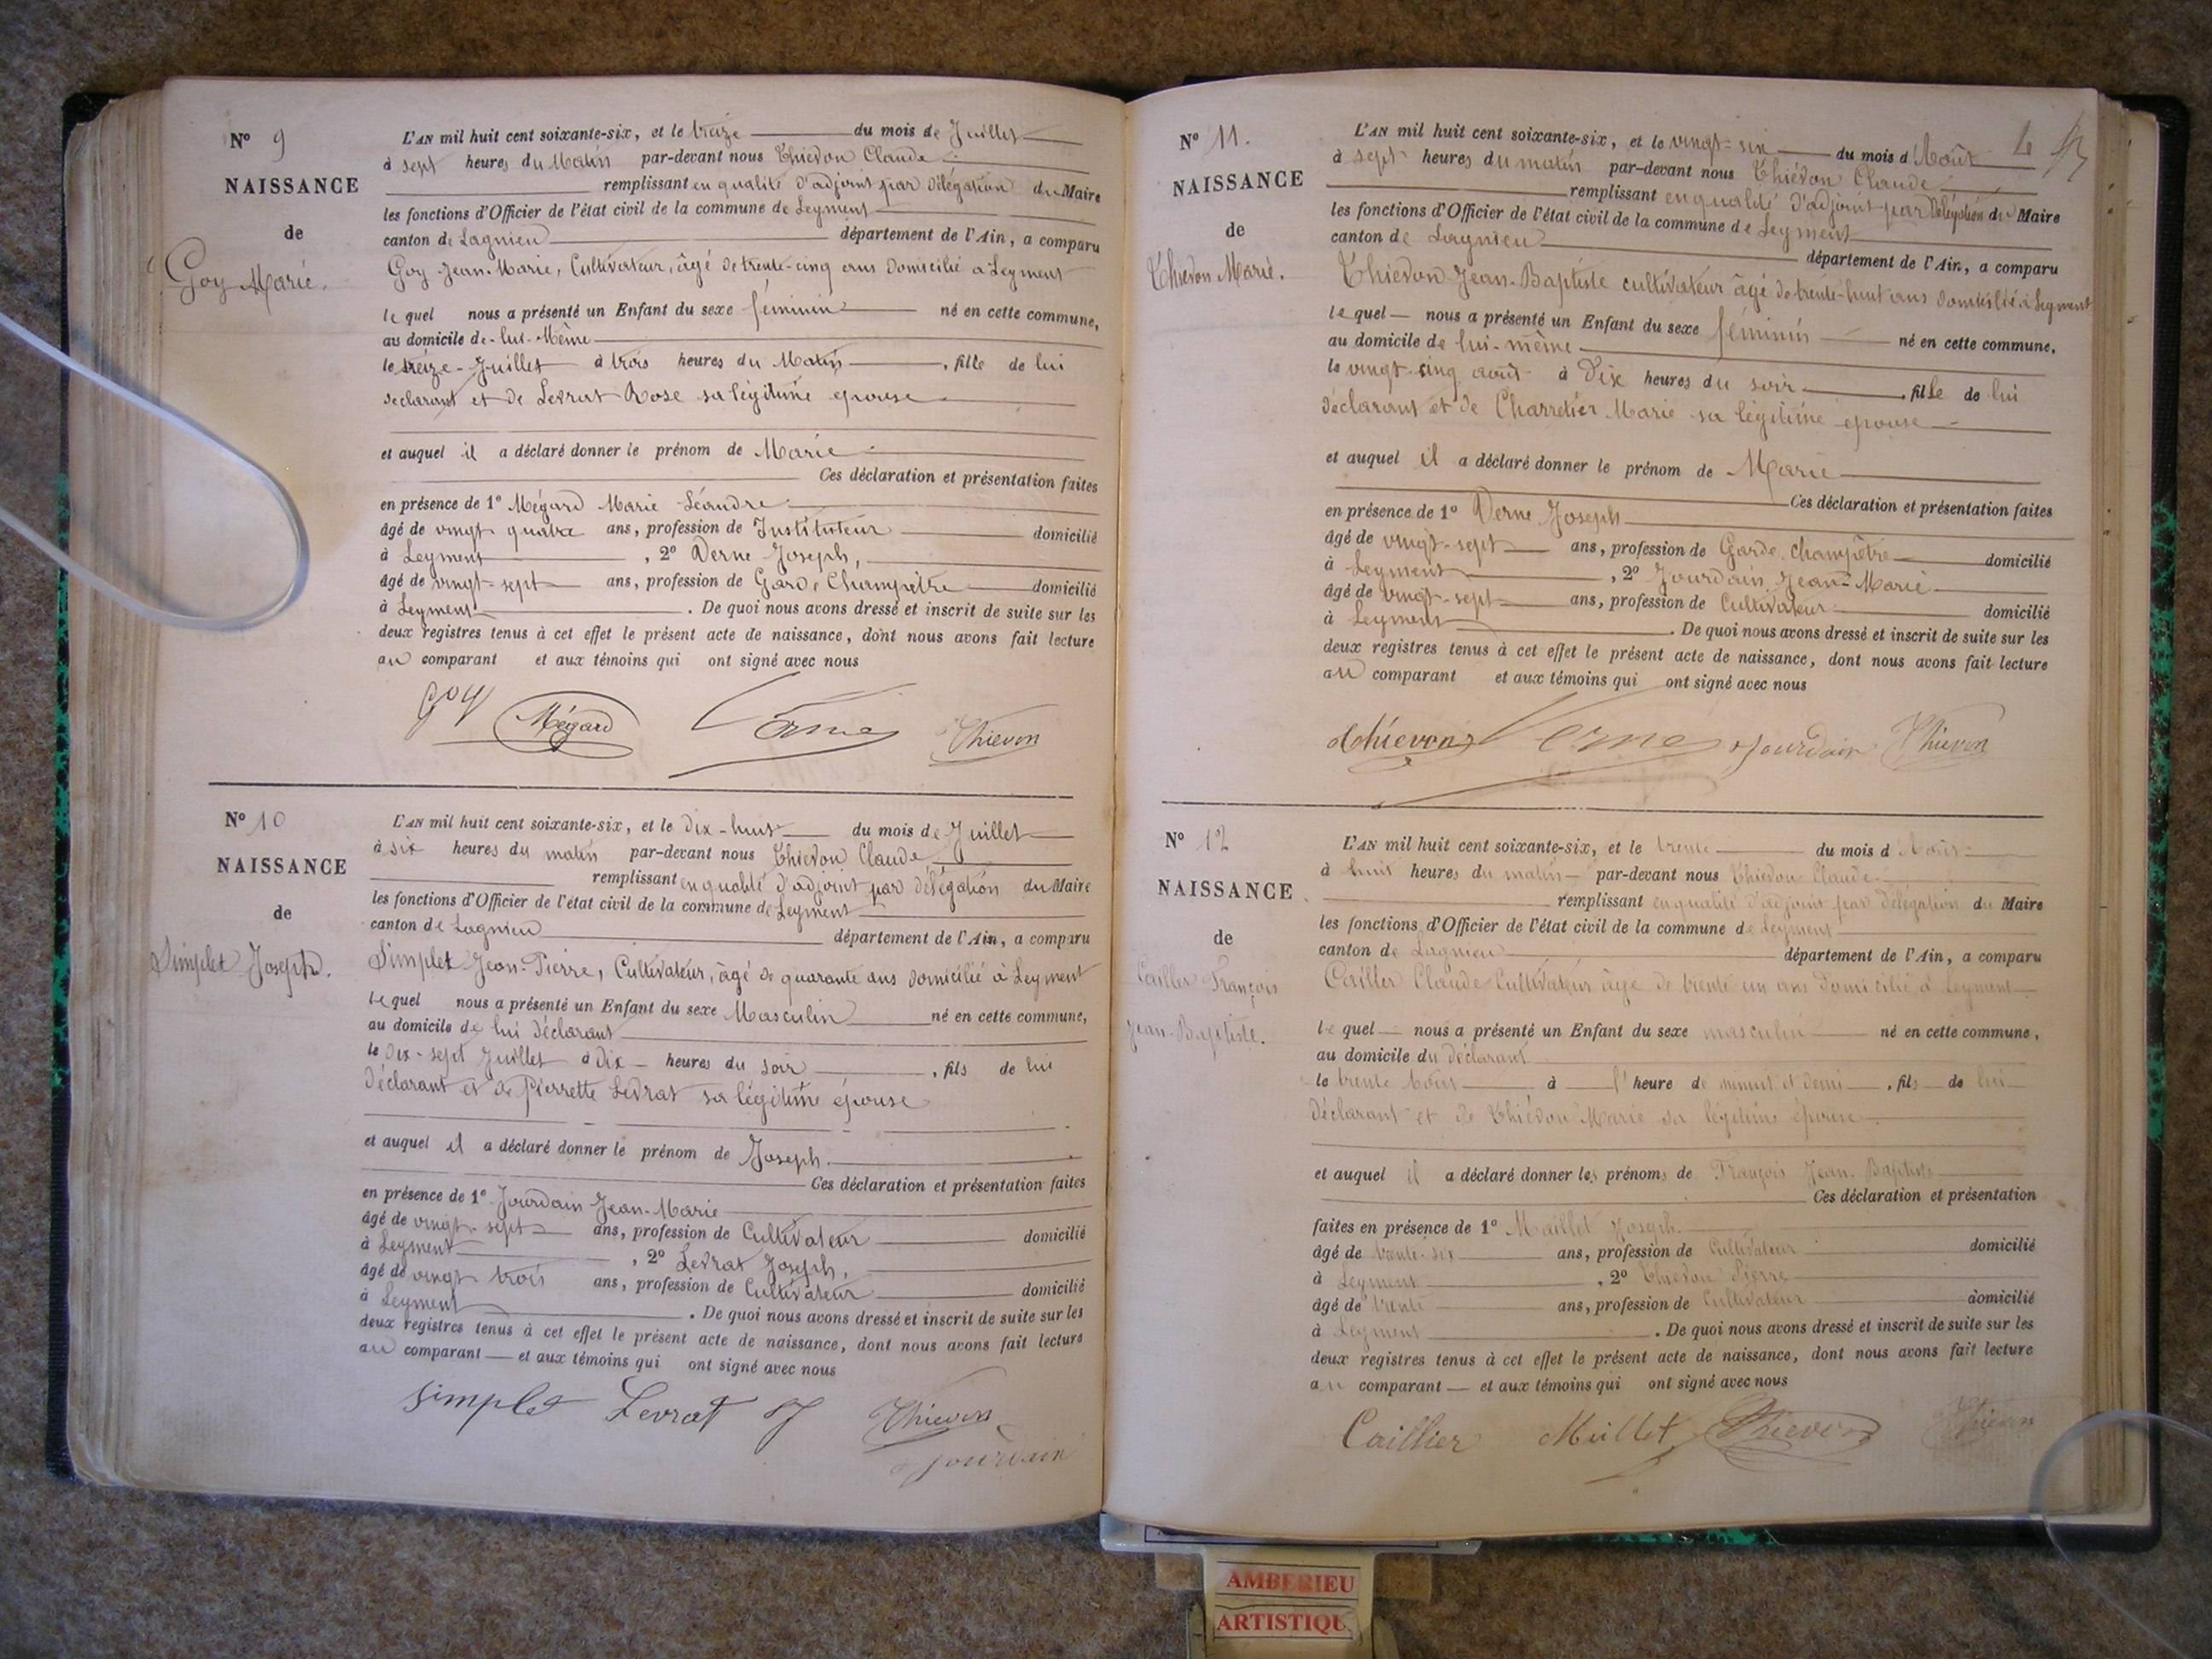 N° 9
NAISSANCE
de
Goy Marie.
L'AN mil huit cent soixante-six, et le treize du mois de Juillet
à sept heures du Matin par-devant nous Thiévon Claude
remplissant en qualité d'adjoint par délégation du Maire
les fonctions d'Officier de l'état civil de la commune de Leyment
canton de Lagnieu département de l'Ain, a comparu
Goy Jean-Marie, Cultivateur, âgé de trente-cinq ans domicilié à Leyment
lequel nous a présenté un Enfant du sexe féminin né en cette commune,
au domicile de lui-Même
le treize Juillet à trois heures du Matin, fille de lui
déclarant et de Levrat Rose sa légitime épouse
et auquel il a déclaré donner le prénom de Marie
Ces déclaration et présentation faites
en présence de 1° Mégard Marie Léandre
âgé de vingt quatre ans, profession de Instituteur domicilié
à Leyment, 2° Verne Joseph,
âgé de vingt-sept ans, profession de Garde Champêtre domicilié
à Leyment. De quoi nous avons dressé et inscrit de suite sur les
deux registres tenus à cet effet le présent acte de naissance, dont nous avons fait lecture
au comparant et aux témoins qui ont signé avec nous
Goy Mégard Verne Thievon
N° 10
NAISSANCE
de
Simplet Joseph.
L'AN mil huit cent soixante-six, et le dix-huit du mois de Juillet
à six heures du matin par-devant nous Thiévon Claude
remplissant en qualité d'adjoint par délégation du Maire
les fonctions d'Officier de l'état civil de la commune de Leyment
canton de Lagnieu département de l'Ain, a comparu
Simplet Jean-Pierre, Cultivateur, âgé de quarante ans domicilié à Leyment
lequel nous a présenté un Enfant du sexe Masculin né en cette commune,
au domicile de lui déclarant
le dix-sept Juillet à dix heures du soir, fils de lui
déclarant et de Pierrette Levrat sa légitime épouse
et auquel il a déclaré donner le prénom de Joseph.
Ces déclaration et présentation faites
en présence de 1° Jourdain Jean-Marie
âgé de vingt-sept ans, profession de Cultivateur domicilié
à Leyment, 2° Levrat Joseph,
âgé de vingt trois ans, profession de Cultivateur domicilié
à Leyment. De quoi nous avons dressé et inscrit de suite sur les
deux registres tenus à cet effet le présent acte de naissance, dont nous avons fait lecture
au comparant et aux témoins qui ont signé avec nous
Simplet Levrat Thievon
Jourdain
N° 11.
NAISSANCE
de
Thiévon Marie.
L'AN mil huit cent soixante-six, et le vingt-six du mois d'Août
à sept heures du matin par-devant nous Thiévon Claude
remplissant en qualité d'adjoint par Délégation du Maire
les fonctions d'Officier de l'état civil de la commune de Leyment
canton de Lagnieu département de l'Ain, a comparu
Thiévon Jean-Baptiste cultivateur âgé de trente-huit ans domicilié à Leyment
lequel nous a présenté un Enfant du sexe féminin né en cette commune,
au domicile de lui-même
le vingt-cinq août à Dix heures du soir, fille de lui
déclarant et de Charretier Marie sa légitime épouse
et auquel il a déclaré donner le prénom de Marie
Ces déclaration et présentation faites
en présence de 1° Verne Joseph
âgé de vingt-sept ans, profession de Garde champêtre domicilié
à Leyment, 2° Jourdain Jean-Marie
âgé de vingt-sept ans, profession de Cultivateur domicilié
à Leyment. De quoi nous avons dressé et inscrit de suite sur les
deux registres tenus à cet effet le présent acte de naissance, dont nous avons fait lecture
au comparant et aux témoins qui ont signé avec nous
thievon Verne Jourdain Thievon
N° 12
NAISSANCE
de
Cailler François
Jean-Baptiste.
L'AN mil huit cent soixante-six, et le trente du mois d'Août
à huit heures du matin par-devant nous Thiévon Claude
remplissant en qualité d'adjoint par délégation du Maire
les fonctions d'Officier de l'état civil de la commune de Leyment
canton de Lagnieu département de l'Ain, a comparu
Cailler Claude Cultivateur âgé de trente un ans domicilié à Leyment
lequel nous a présenté un Enfant du sexe masculin né en cette commune,
au domicile du déclarant
le trente Août à l'heure de minuit et demi, fils de lui
déclarant et de Thiévon Marie sa légitime épouse
et auquel il a déclaré donner les prénoms de François Jean-Baptiste
Ces déclaration et présentation
faites en présence de 1° Maillet Joseph
âgé de trente-six ans, profession de Cultivateur domicilié
à Leyment, 2° Thiévon Pierre
âgé de trente ans, profession de Cultivateur domicilié
à Leyment. De quoi nous avons dressé et inscrit de suite sur les
deux registres tenus à cet effet le présent acte de naissance, dont nous avons fait lecture
au comparant et aux témoins qui ont signé avec nous
Caillier Maillet Thievon Thievon
AMBERIEU
ARTISTIQU